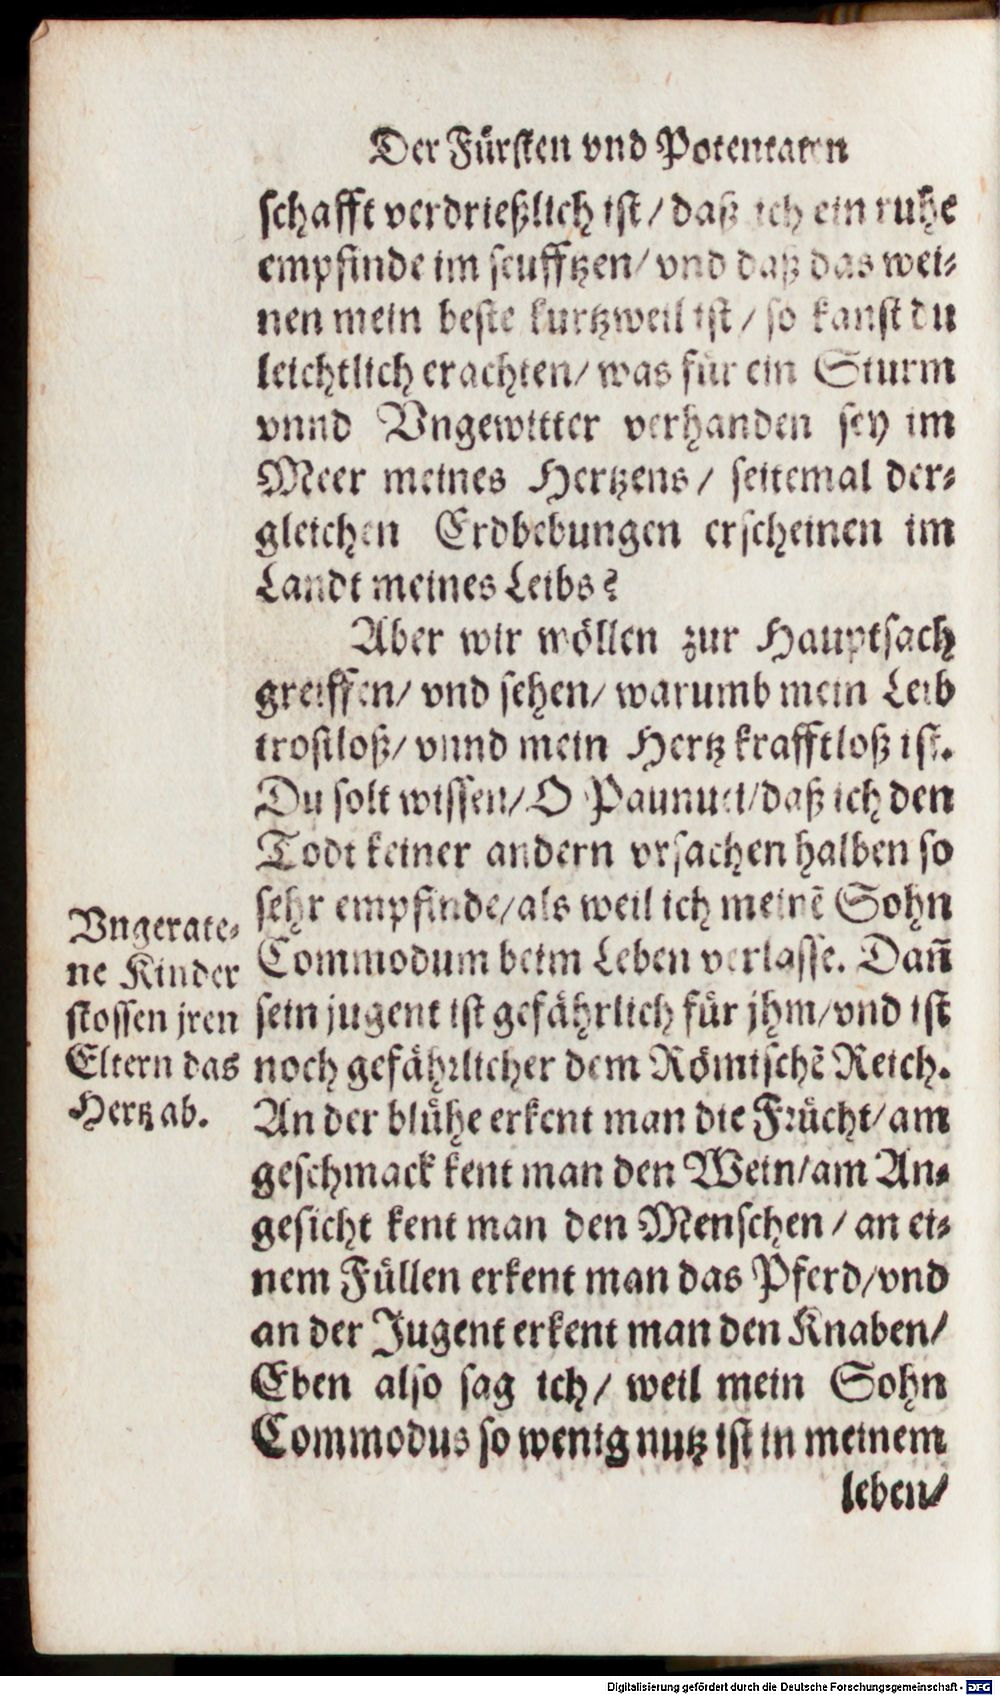 Der Fürsten vnd Potentaten
schafft verdrießlich ist / daß ich ein ruhe
empfinde im seufftzen / vnd daß das wei-
nen mein beste kurtzweil ist / so kanst du
leichtlich erachten / was für ein Sturm
vnnd Vngewitter verhanden sey im
Meer meines Hertzens / seitemal der-
gleichen Erdbebungen erscheinen im
Landt meines Leibs?
Aber wir wöllen zur Hauptsach
greiffen / vnd sehen / warumb mein Leib
trostloß / vnnd mein Hertz krafftloß ist.
Du solt wissen / O Panuti / daß ich den
Todt keiner andern vrsachen halben so
sehr empfinde / als weil ich meinẽ Sohn
Commodum beim Leben verlasse. Dañ
sein jugent ist gefährlich für jhm / vnd ist
noch gefährlicher dem Römischẽ Reich.
An der blühe erkent man die Frücht / am
geschmack kent man den Wein / am An-
gesicht kent man den Menschen / an ei-
nem Füllen erkent man das Pferd / vnd
an der Jugent erkent man den Knaben /
Eben also sag ich / weil mein Sohn
Commodus so wenig nutz ist in meinem
leben /
Vngerate-
ne Kinder
stossen jren
Eltern das
Hertz ab.
Digitalisierung gefördert durch die Deutsche Forschungsgemeinschaft - DFG